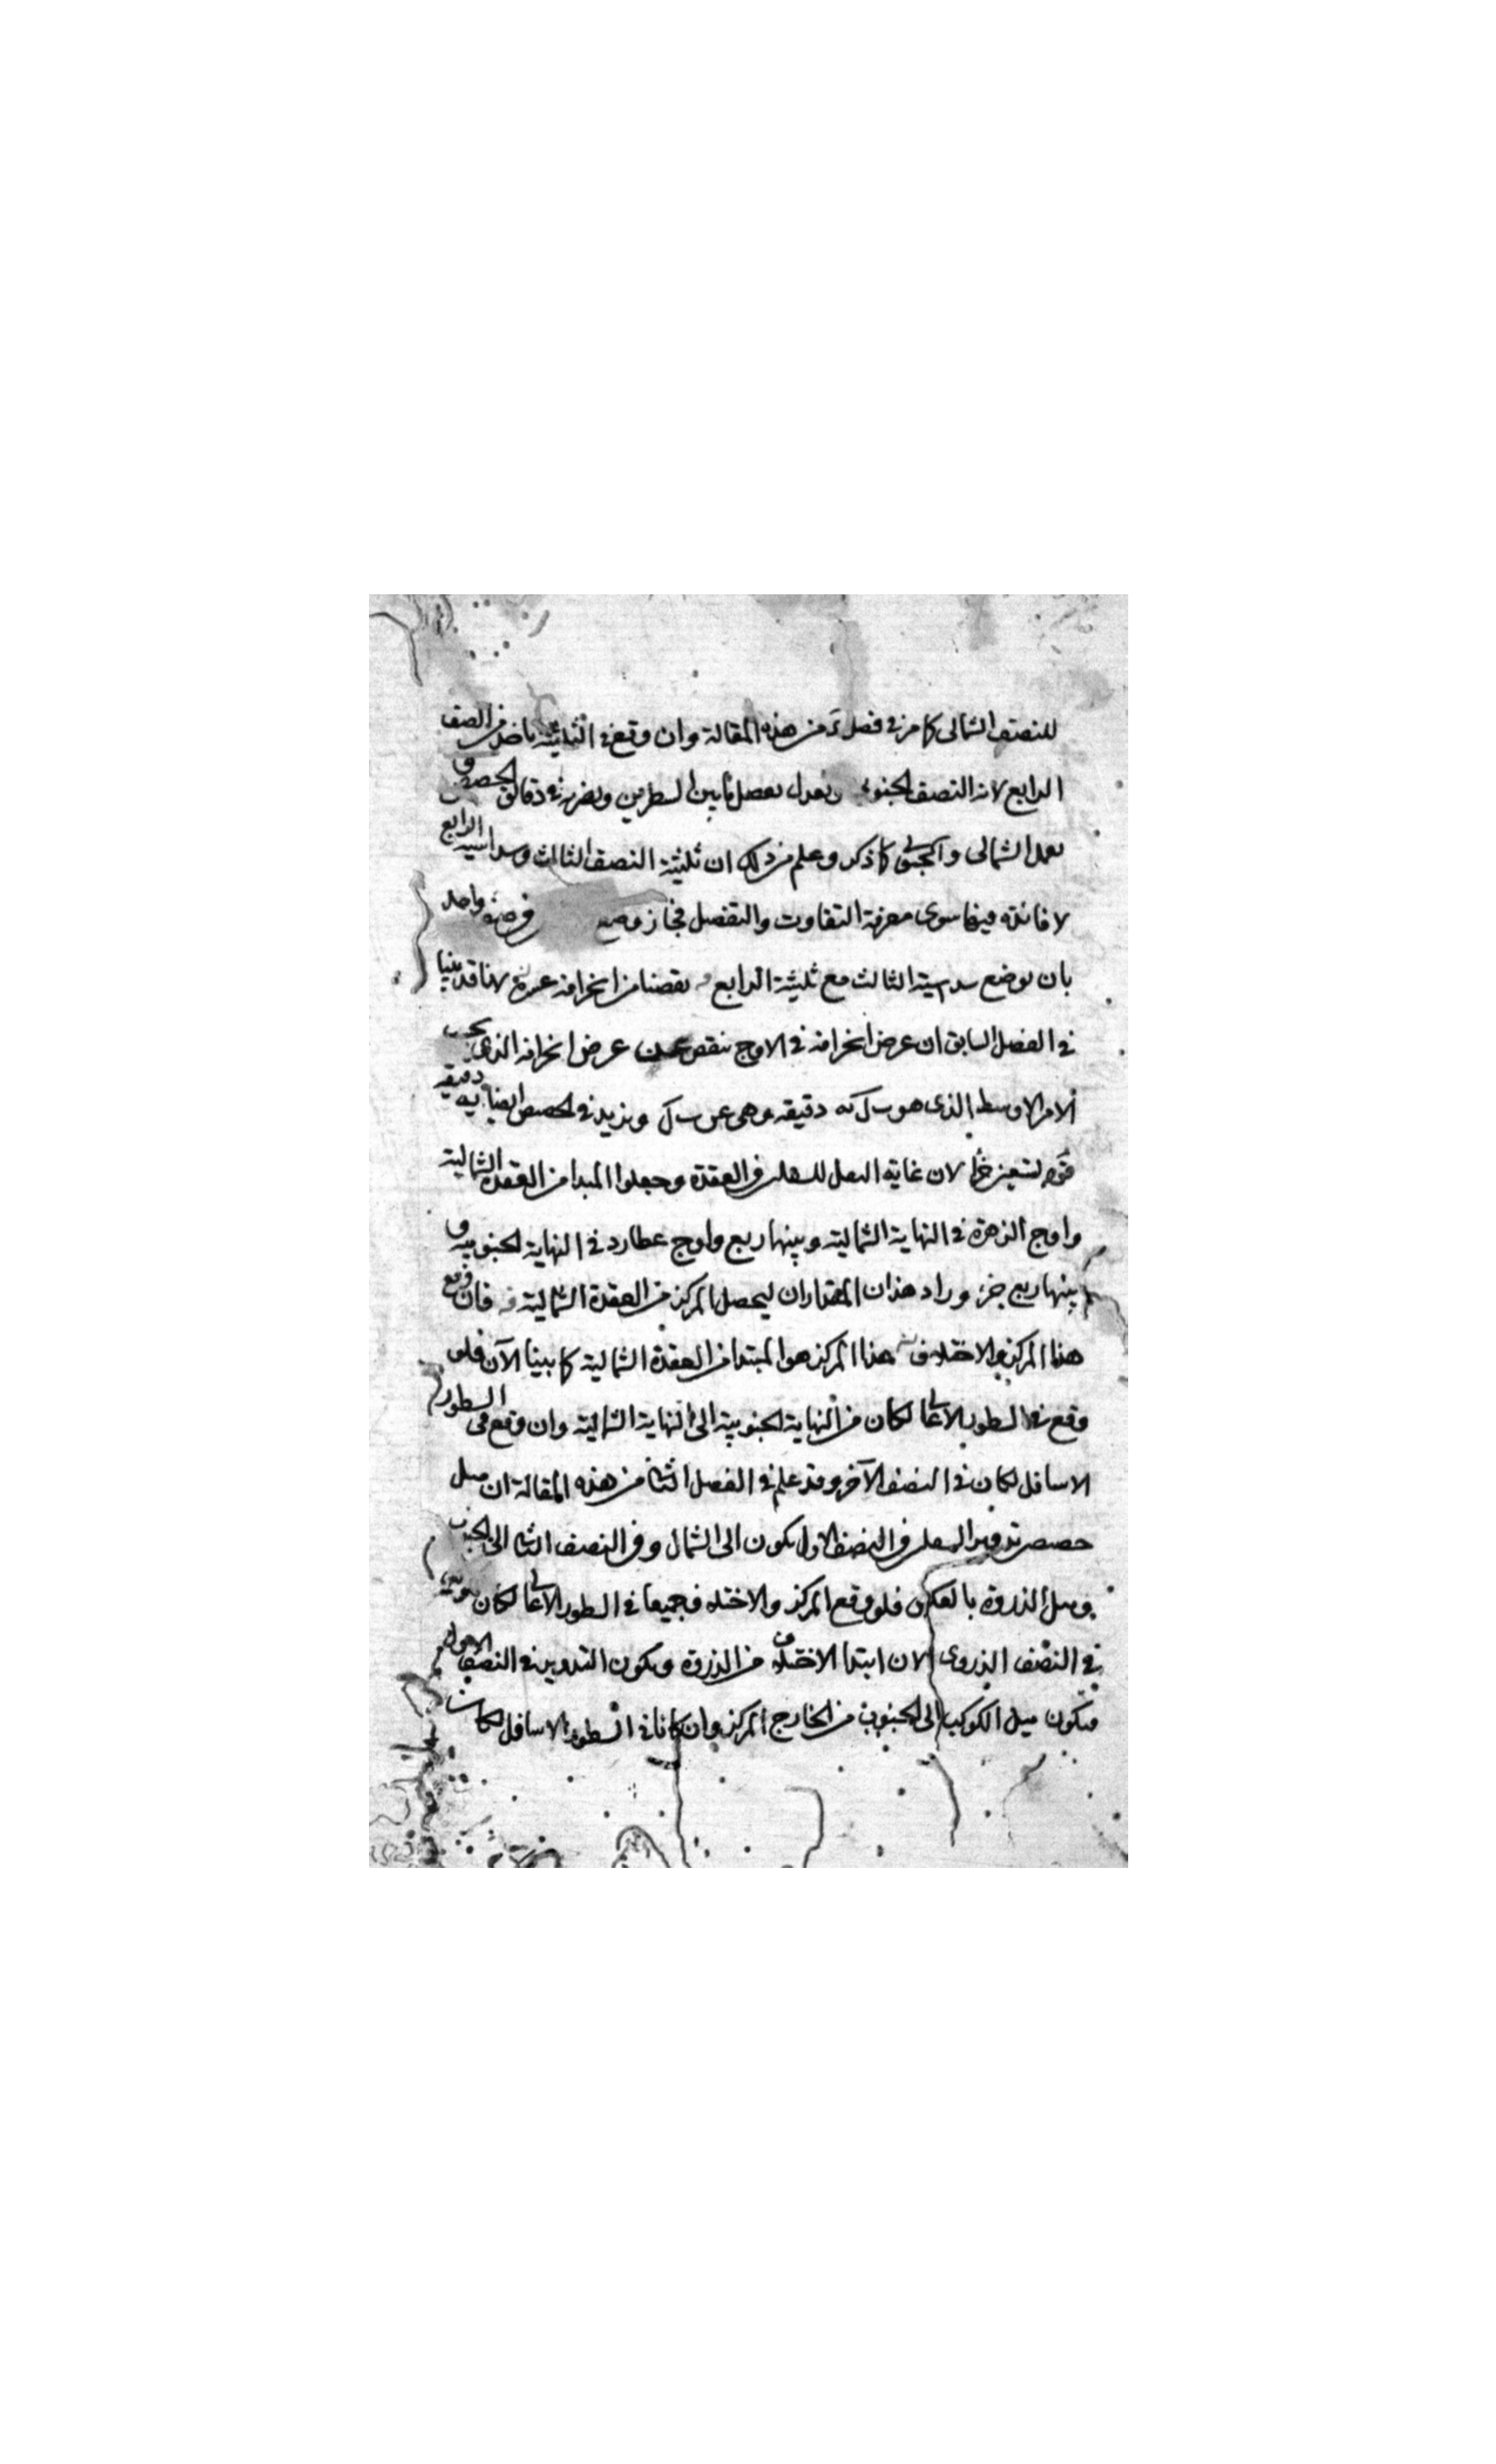 للنصف الشمالى كما مر فى فصل من هذه المقالة وان وقع فى الثانية ناخذ من الصف
الرابع لانه النصف الجنوبى ونعدل بفضل ما بين السطرين ونضربه فى دقائق الحصص و
نعمل الشمالى والجنوبى كما ذكر وعلم من ذلك ان ثلثية النصف الثالث وسداسية الرابع
لا فائدة فيها سوى معرفة التفاوت والتفضل فجاز وضع واحد
بان يوضع سدسية الثالث مع ثلثية الرابع نقصنا من انحرافه لانا قد بينا
فى الفصل السابق ان عرض انحرافه فى الاوج ينقص عن عرض انحرافه الذى
الاوسط الذى هو دقيقه وهى ونزيد فى الحصص ايضا دقيقه
لان غاية الميل للسفلى فى العقدة وجعلوا المبدا من العقدة الشمالية
واوج الزهرة فى النهاية الشمالية وبينها ربع واوج عطارد فى النهاية الجنوبية و
بينها ربع وزاد هذان المقداران ليحصل المركز من العقدة الشمالية فان وقع
هذا المركز والاختلاف هذا المركز هو المبتدا من العقدة الشمالية كما بينا الآن فلو
وقع فى السطور الاعالى لكان من النهاية الجنوبية الى النهاية الشمالية وان وقع فى السطور
الاسافل لكان فى النصف الآخر وقد علم فى الفصل الثانى من هذه المقالة ان ميل
حضيض تدوير السفلى فى النصف الاول يكون الى الشمال وفى النصف الثانى الى الجنوب
وميل الذروة بالعكس فلو وقع المركز والاختلاف جميعا فى السطور الاعالى لكان
فى النصف الذروى لان ابتدا الاختلاف من الذروة ويكون التدوير فى النصف الاول
فيكون ميل الكوكب الى الجنوب من الخارج المركز وان كانا فى السطور الاسافل لكان